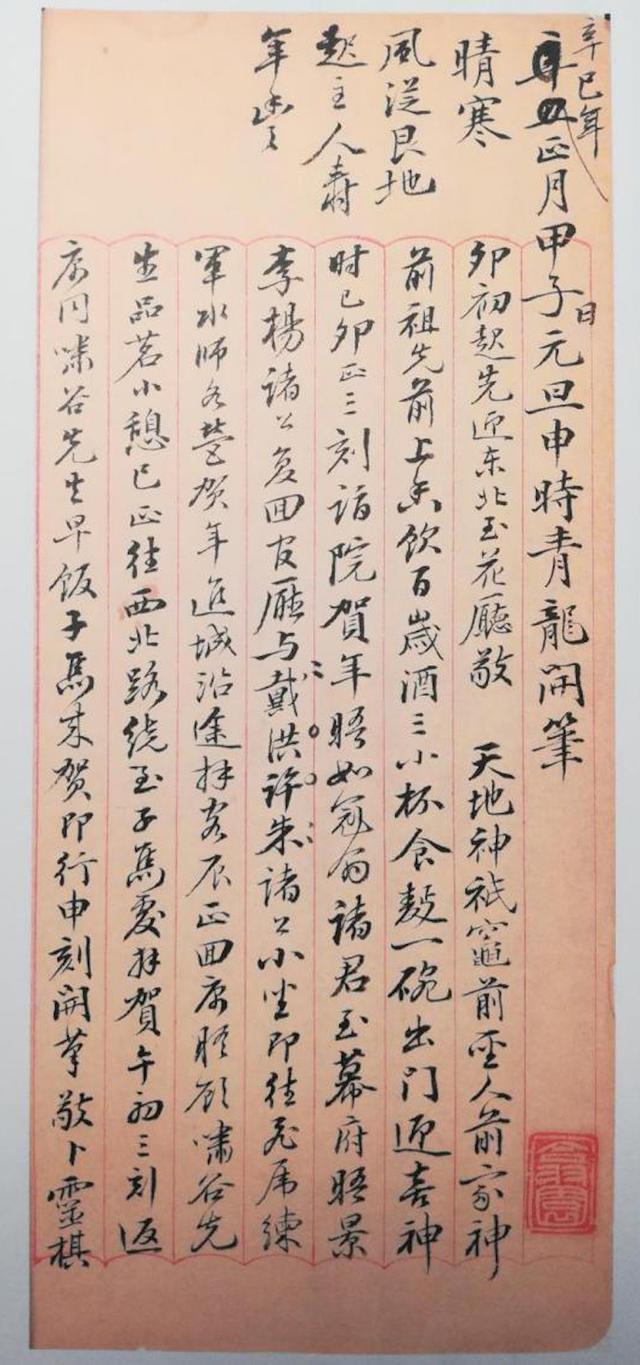 辛巳年
正月甲子日元旦申時青龍開筆
晴寒
風從艮地
起主人壽
年豊
卯初起先迎东北至花廳敬 天地神祇竈前聖人前家神
前祖先前上香飲百歲酒三小杯食麪一碗出门迎喜神
时已卯正三刻詣院賀年晤如冠翁諸君至幕府晤景
李楊诸公复回官廳与戴洪许朱诸公小坐即往飛虎練
軍水师各营贺年進城沿途拜客辰正回寓晤顧嘯谷先
生品茗小憩巳正往西北路绕至子馬處拜賀午初三刻返
寓同嘯谷先生早饭子馬来贺即行申刻開筆敬卜靈棋